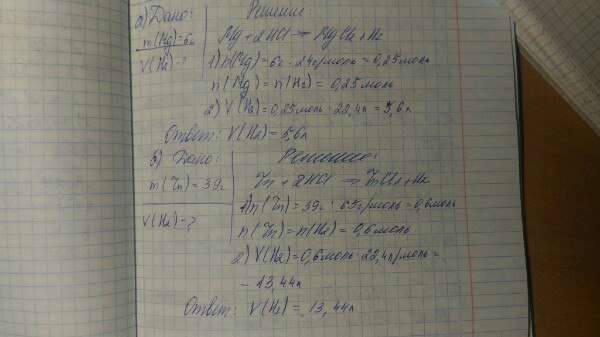 а) Дано: Решение:
m(Mg)=6г Mg + 2HCl → MgCl2 + H2
V(H2)-? 1) n(Mg) = 6г : 24г/моль = 0,25моль
n(Mg) = n(H2) = 0,25моль
2) V(H2) = 0,25моль · 22,4л = 5,6л
Ответ: V(H2) = 5,6л
б) Дано: Решение:
m(Zn) = 39г Zn + 2HCl → ZnCl2 + H2
V(H2)-? 1) n(Zn) = 39г : 65г/моль = 0,6моль
n(Zn) = n(H2) = 0,6моль
2) V(H2) = 0,6моль · 22,4л/моль =
= 13,44л
Ответ: V(H2) = 13,44л